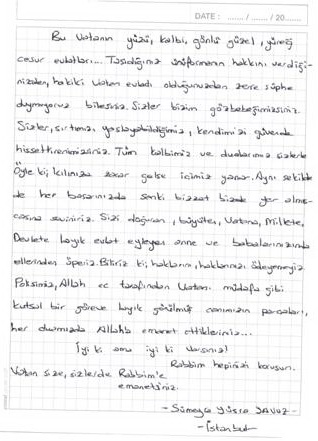 DATE : ....... / ....... / 20.......
Bu Vatanın yüzü, kalbi, gönlü güzel, yüreği
cesur evlatları... Taşıdığınız üniformanın hakkını verdiği-
nizden, hakiki Vatan evladı olduğunuzdan zerre şüphe
duymuyoruz bilesiniz. Sizler bizim gözbebeğimizsiniz.
Sizler, sırtımızı yaslayabildiğimiz, kendimizi güvende
hissettirenimizsiniz. Tüm kalbimiz ve dualarımız sizlerle
Öyle ki; kılınıza zarar gelse içimiz yanar. Aynı şekilde
de her başarınızda sanki bizzat bizde yer almış-
casına seviniriz. Sizi doğuran, büyüten, Vatana, Millete,
Devlete layık evlat eyleyen anne ve babalarınızında
ellerinden öperiz. Biliriz ki; hakların, hakkınızı ödeyemeyiz.
Allah cc tarafından Vatanı müdafa gibi
kutsal bir göreve layık görülmüş canımızın parçaları,
her duamızda Allah'a emanet ettiklerimiz...
İyi ki ama iyi ki varsınız!
Rabbim hepinizi korusun.
Vatan size, sizlerde Rabbim'e
emanetsiniz.
- Sümeyye Yüsra YAVUZ -
- İstanbul -